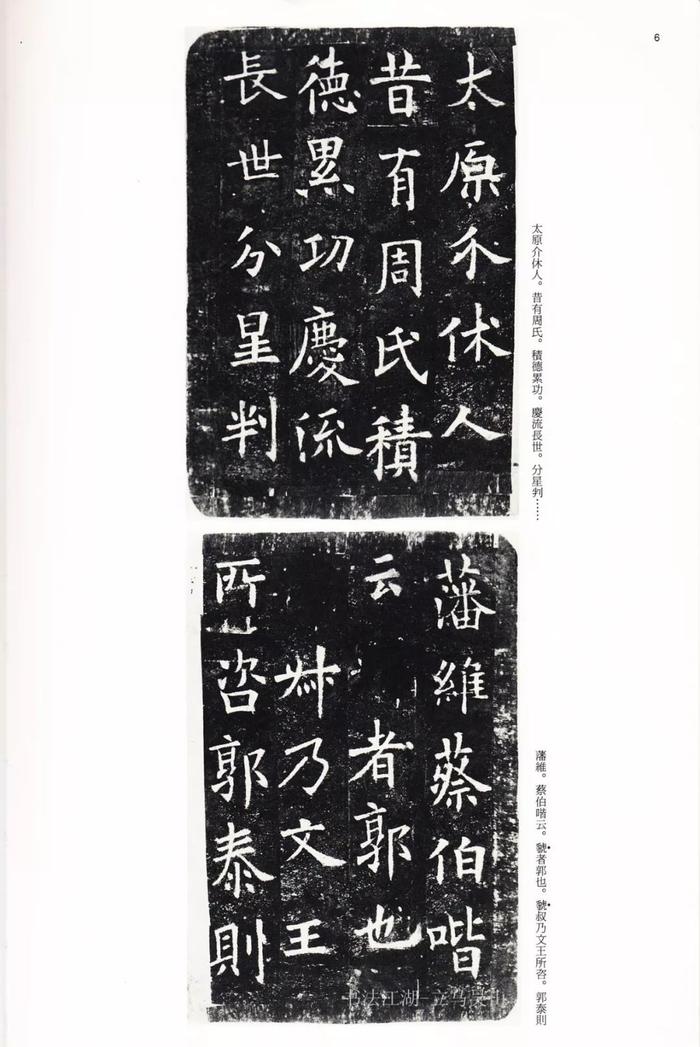 6
太原介休人
昔有周氏積
德累功慶流
長世分星判
太原介休人。昔有周氏。積德累功。慶流長世。分星判……
藩維蔡伯喈
云者郭也
叔乃文王
所咨郭泰則
藩維。蔡伯喈云。虢者郭也。虢叔乃文王所咨。郭泰則
书法江湖